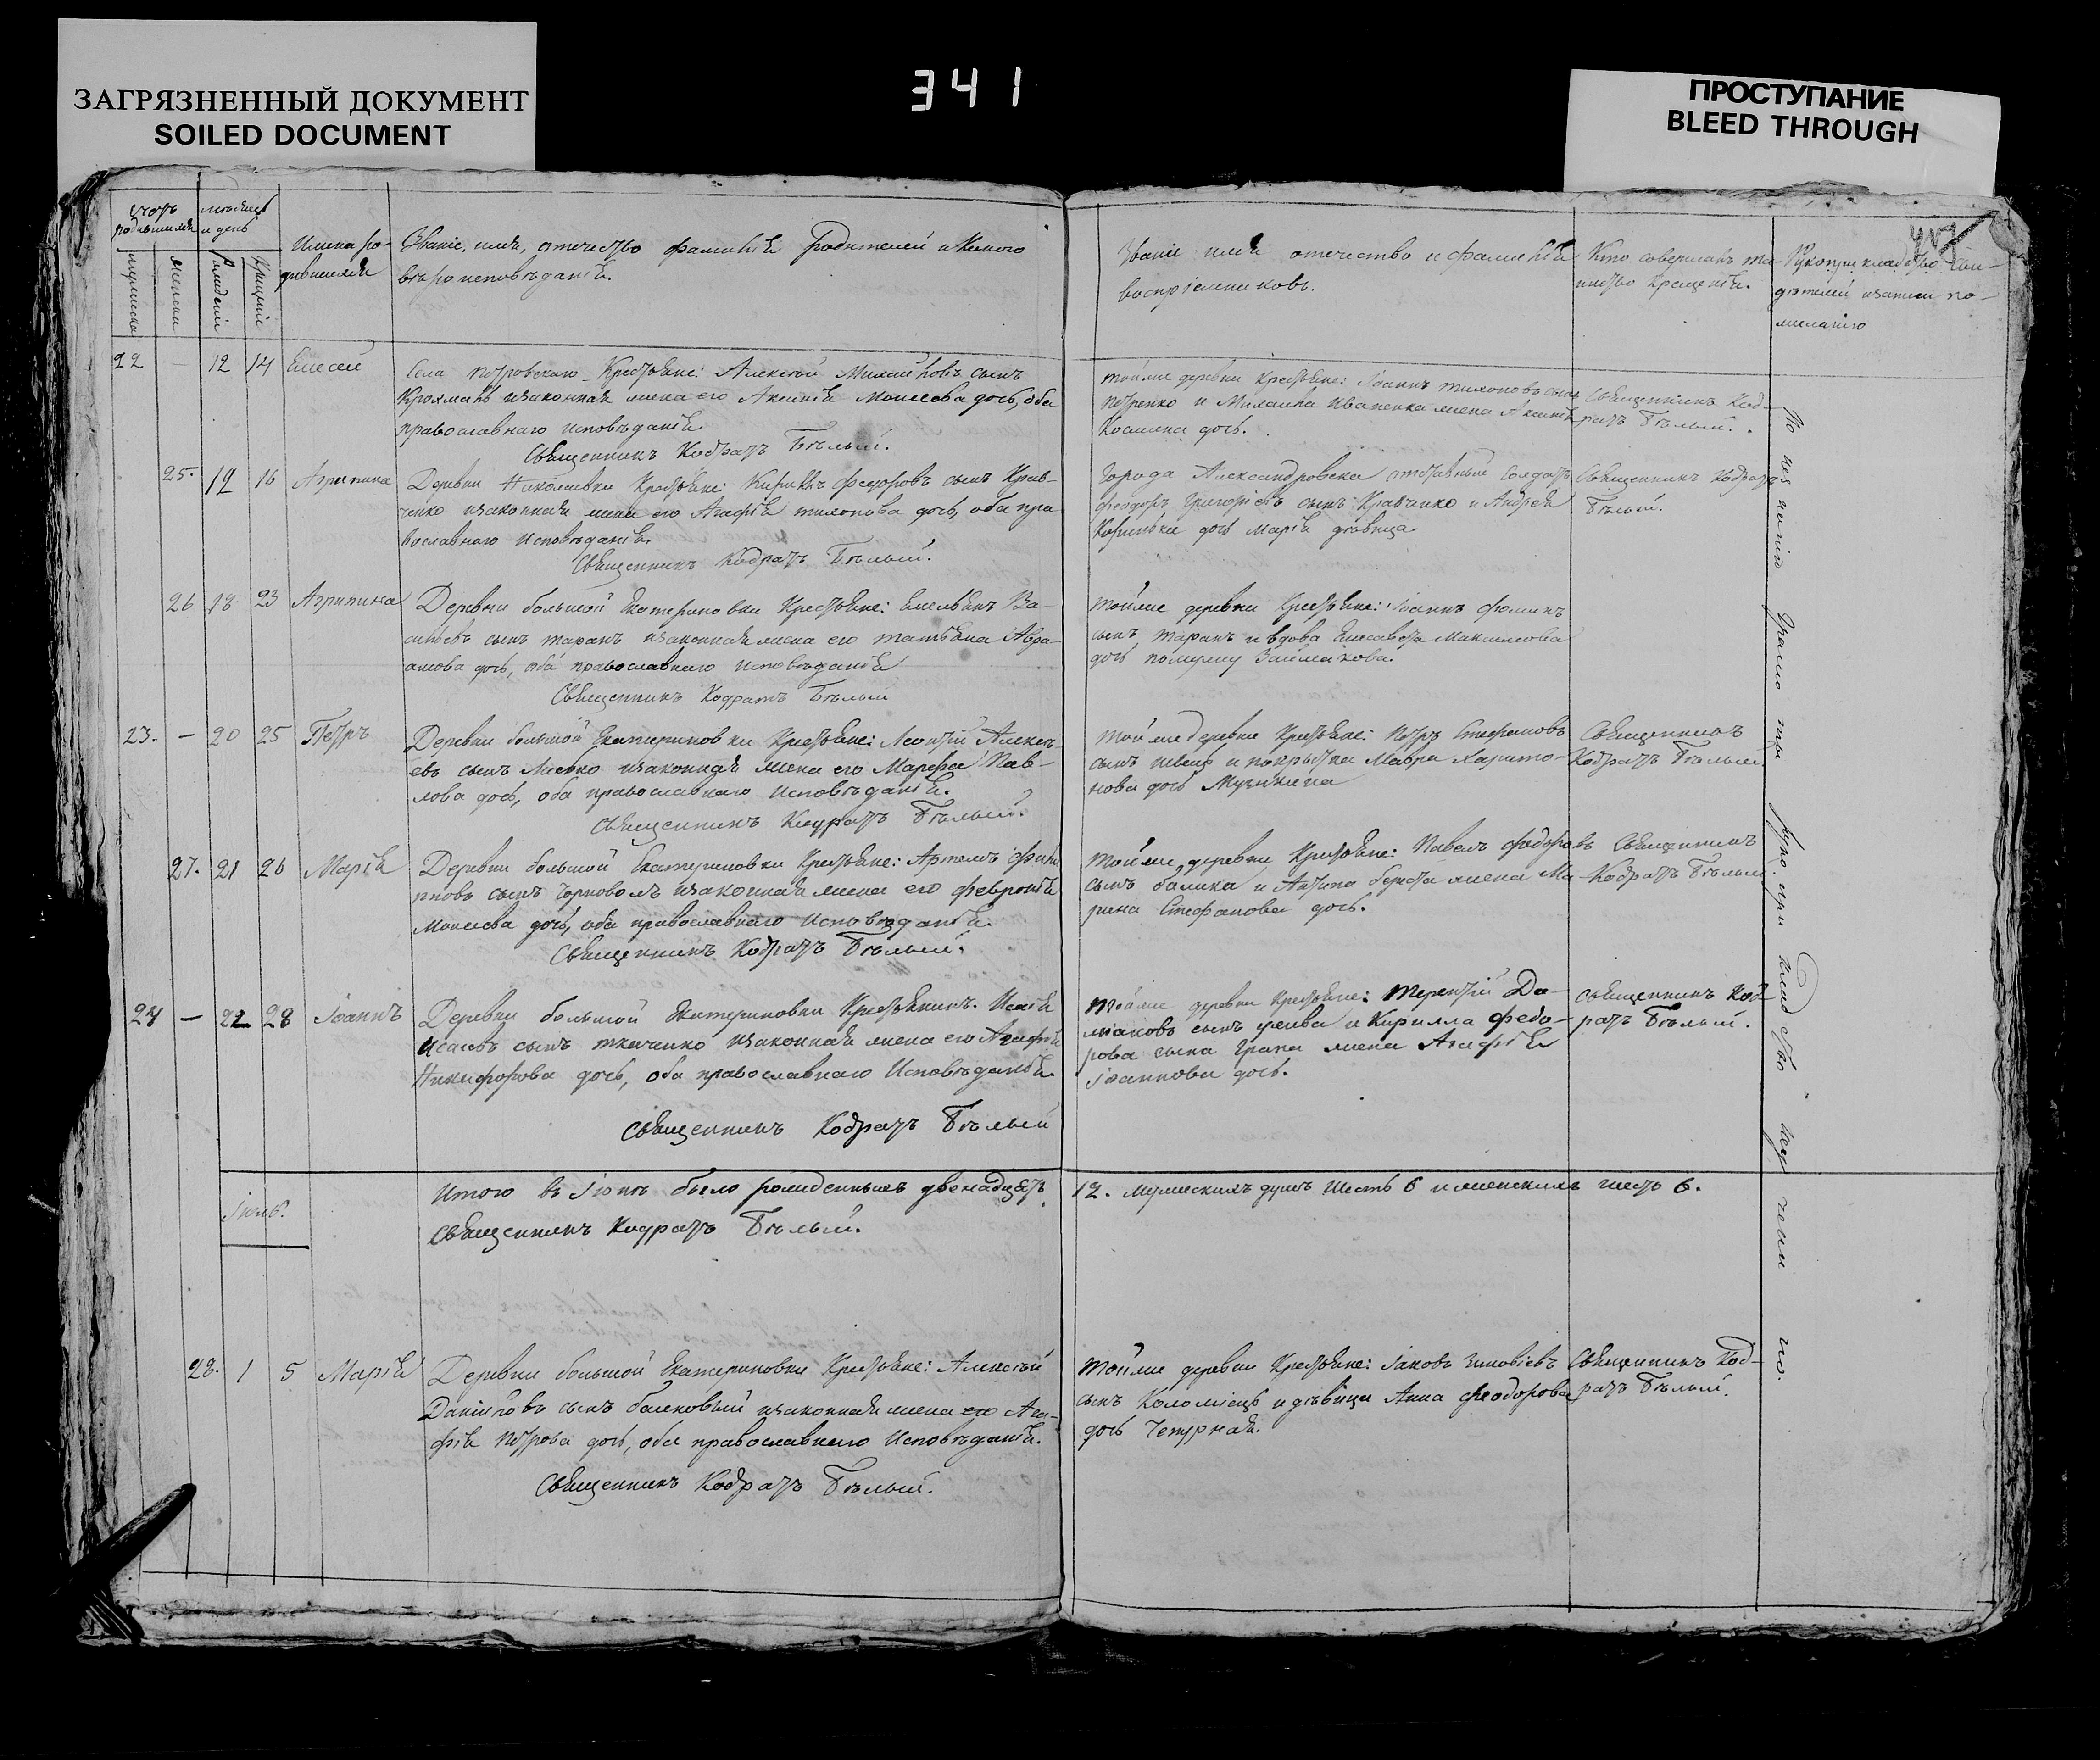 ЗАГРЯЗНЕННЫЙ ДОКУМЕНТ
SOILED DOCUMENT
341
ПРОСТУПАНИЕ
BLEED THROUGH
счотъ родившихся
мѣсяцъ и день
мужеска
женски
рожденія
крещенія
Имена ро-
дившихся
Званіе, имя, отечество фамилія Родителей и Какого
вѣроисповѣданія
Званіе имя отечество и фамилія
воспріемниковъ.
Кто совершалъ та-
инство крещенія.
Рукоприкладство сви-
дѣтелей записи по-
желанію
22 — 12 14 Елисей
Села Петровскаго Крестьяне: Алексѣй Михайловъ сынъ
изаконная жена его Аксинія Моисеова дочь, оба
православнаго исповѣданія
Священникъ Кодратъ Бѣлый.
тойже деревни Крестьяне: Іоаннъ тихоновъ сынъ
Петренко и Михаила Иваненка жена Аксинія
Козмина дочь.
Священникъ Код-
ратъ Бѣлый.
25. 12 16 Агрипина
Деревни Николаевки Крестьяне: Кириллъ федоровъ сынъ Крав-
ченко изаконная жена его Агафія тихонова дочь, оба пра
вославнаго Исповѣданія.
Священникъ Кодратъ Бѣлый.
Города Александровска отставный солдатъ
феодоръ Григоріевъ сынъ Кравченко и Андрея
дочь Марія дѣвица
Священникъ Кодратъ
Бѣлый.
26 18 23 Агрипина
Деревни большой Екатериновки Крестьяне: Емельянъ Ва-
сильевъ сынъ таранъ изаконная жена его татіяна Авра-
амова дочь, оба православнаго исповѣданія
Священникъ Кодратъ Бѣлый
тойже деревни Крестьяне: Іоаннъ фоминъ
сынъ таранъ и вдова Елисавета Максимова
дочь помужу Займакова.
23. — 20 25 Петръ
Деревни большой Екатериновки Крестьяне: Леонтій Алексѣ-
евъ сынъ Лисько изаконная жена его Марфа Пав-
лова дочь, оба православнаго исповѣданія.
Священникъ Кодратъ Бѣлый.
тойже деревни Крестьяне: Петръ Стефановъ
сынъ швецъ и покрытка Мавра Харито-
нова дочь Мужикина
Священникъ
Кодратъ Бѣлый
27. 21 26 Марія
Деревни большой Екатериновки Крестьяне: Артемъ фили
повъ сынъ Чорноволъ изаконная жена его февронія
Моисеова дочь, оба православнаго исповѣданія.
Священникъ Кодратъ Бѣлый.
тойже деревни Крестьяне: Павелъ федоровъ
сынъ балика и Антипа береста жена Ма-
рина Стефанова дочь.
Священникъ
Кодратъ Бѣлый
24 — 22 28 Іоаннъ
Деревни большой Екатериновки Крестьянинъ. Исаія
Исаевъ сынъ ткаченко изаконная жена его Агафія
Никифорова дочь, оба православнаго Исповѣданія.
Священникъ Кодратъ Бѣлый
тойже деревни Крестьяне: терентій До-
сынъ и Кирилла федо-
рова сына жена Агафія
Іоаннова дочь.
Священникъ Код
ратъ Бѣлый.
Итого въ Іюнѣ было рожденныхъ двенадцать 12. мужескихъ душъ шесть 6 и женскихъ шесть 6.
Священникъ Кодратъ Бѣлый.
Іюль.
28. 1 5 Марія
Деревни большой Екатериновки Крестьяне: Алексѣй
Даніиловъ сынъ изаконная жена его Ага-
фія Петрова дочь, оба православнаго Исповѣданія.
Священникъ Кодратъ Бѣлый.
тойже деревни Крестьяне: Іаковъ Зиновіевъ
сынъ Коломіецъ и дѣвица Анна феодорова
дочь Чепурная.
Священникъ Код-
ратъ Бѣлый.